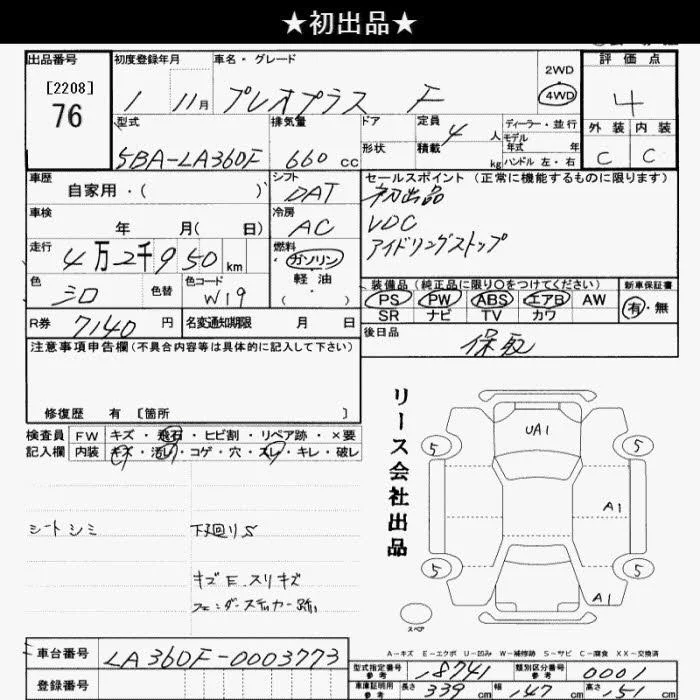 ★初出品★
出品番号
[2208]
76
初度登録年月
1 11月
車名・グレード
プレオプラス F
2WD
4WD
評価点
4
外装 内装
C C
型式
5BA-LA360F
排気量
660 cc
ドア
形状
定員
4 人
積載
kg
ディーラー・並行
モデル
年式 年
ハンドル 左・右
車歴
自家用・( )
シフト
DAT
セールスポイント (正常に機能するものに限ります)
初出品
VDC
アイドリングストップ
車検
年 月( 日)
冷房
AC
走行
4万2千950 km
燃料
ガソリン
軽油
( ・ )
色
シロ
色替
色コード
W19
装備品 (純正品に限り○をつけてください)
PS PW ABS エアB AW
SR ナビ TV カワ
新車保証書
有・無
R券 7140 円
名変通知期限 月 日
後日品
保取
注意事項申告欄 (不具合内容等は具体的に記入して下さい)
修復歴 有 [箇所 ]
検査員
記入欄
FW キズ・飛石・ヒビ割・リペア跡・×要
内装 キズ・汚れ・コゲ・穴・スレ・キレ・破レ
シートシミ
下廻りS
キズE スリキズ
フェンダーステッカー跡
リース会社出品
UA1
5
5
A1
5
5
A1
スペア
A-キズ E-エクボ U-凹み W-補修跡 S-サビ C-腐食 XX-交換済
車台番号
LA360F-0003773
登録番号
型式指定番号
参考
18741
類別区分番号
参考
0001
車庫証明用
参考
長さ 339 cm 幅 147 cm 高さ 151 cm